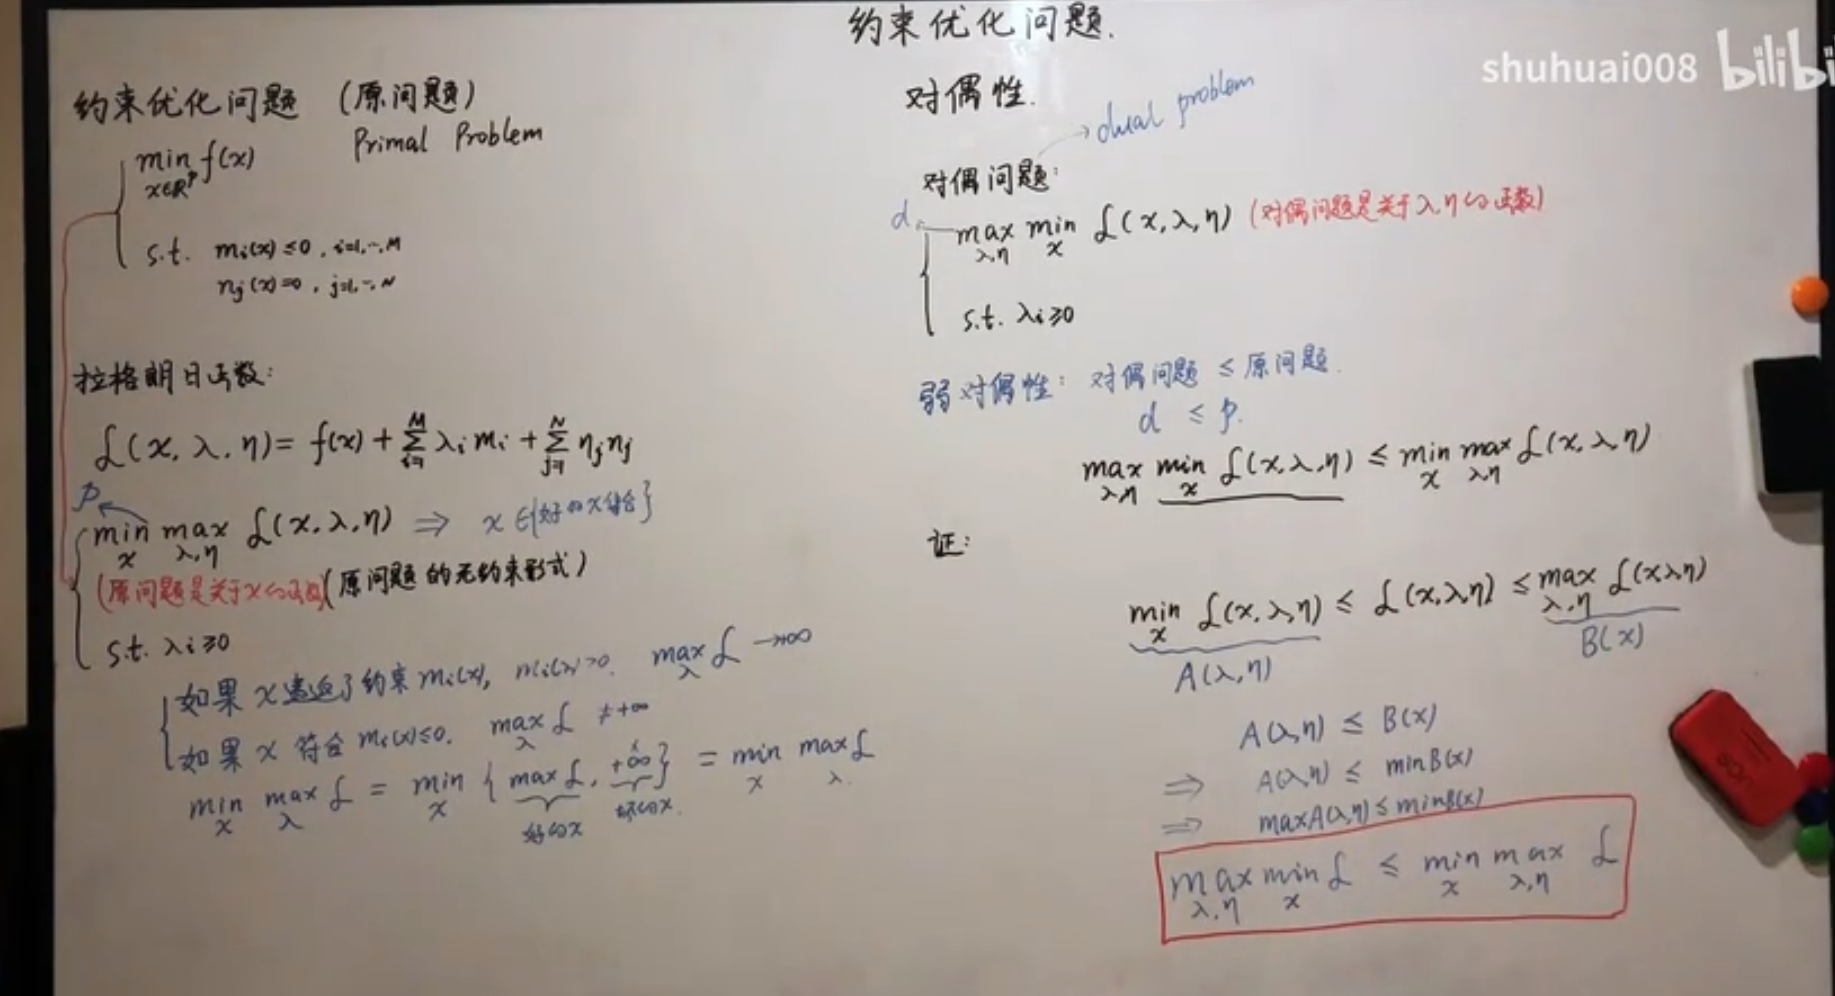 约束优化问题.
shuhuai008 bilibi
约束优化问题 (原问题)
Primal Problem
min f(x)
x∈ℝᵖ
s.t. mᵢ(x) ≤ 0, i=1,…,M
nⱼ(x)=0, j=1,…,N
拉格朗日函数:
L(x, λ, η) = f(x) + ∑ᵢ₌₁ᴹ λᵢ mᵢ + ∑ⱼ₌₁ᴺ ηⱼ nⱼ
p
min max L(x, λ, η) ⇒ x ∈ {好的x集合}
x λ,η
(原问题是关于x的函数) (原问题的无约束形式)
s.t. λᵢ ≥ 0
如果 x 违返了约束 mᵢ(x), mᵢ(x)>0. max L → +∞
λ
如果 x 符合 mᵢ(x)≤0. max L ≠ +∞
λ
min max L = min { max L, +∞ } = min max L
x λ x x λ.
好的x 坏的x.
对偶性.
→ dual problem
对偶问题:
d
max min L(x, λ, η) (对偶问题是关于λ,η的函数)
λ,η x
s.t. λᵢ ≥ 0
弱对偶性: 对偶问题 ≤ 原问题.
d ≤ p.
max min L(x,λ,η) ≤ min max L(x,λ,η)
λ,η x x λ,η
证:
min L(x,λ,η) ≤ L(x,λ,η) ≤ max L(xλη)
x λ,η
A(λ,η) B(x)
A(λ,η) ≤ B(x)
⇒ A(λ,η) ≤ minB(x)
⇒ maxA(λ,η) ≤ minB(x)
max min L ≤ min max L
λ,η x x λ,η